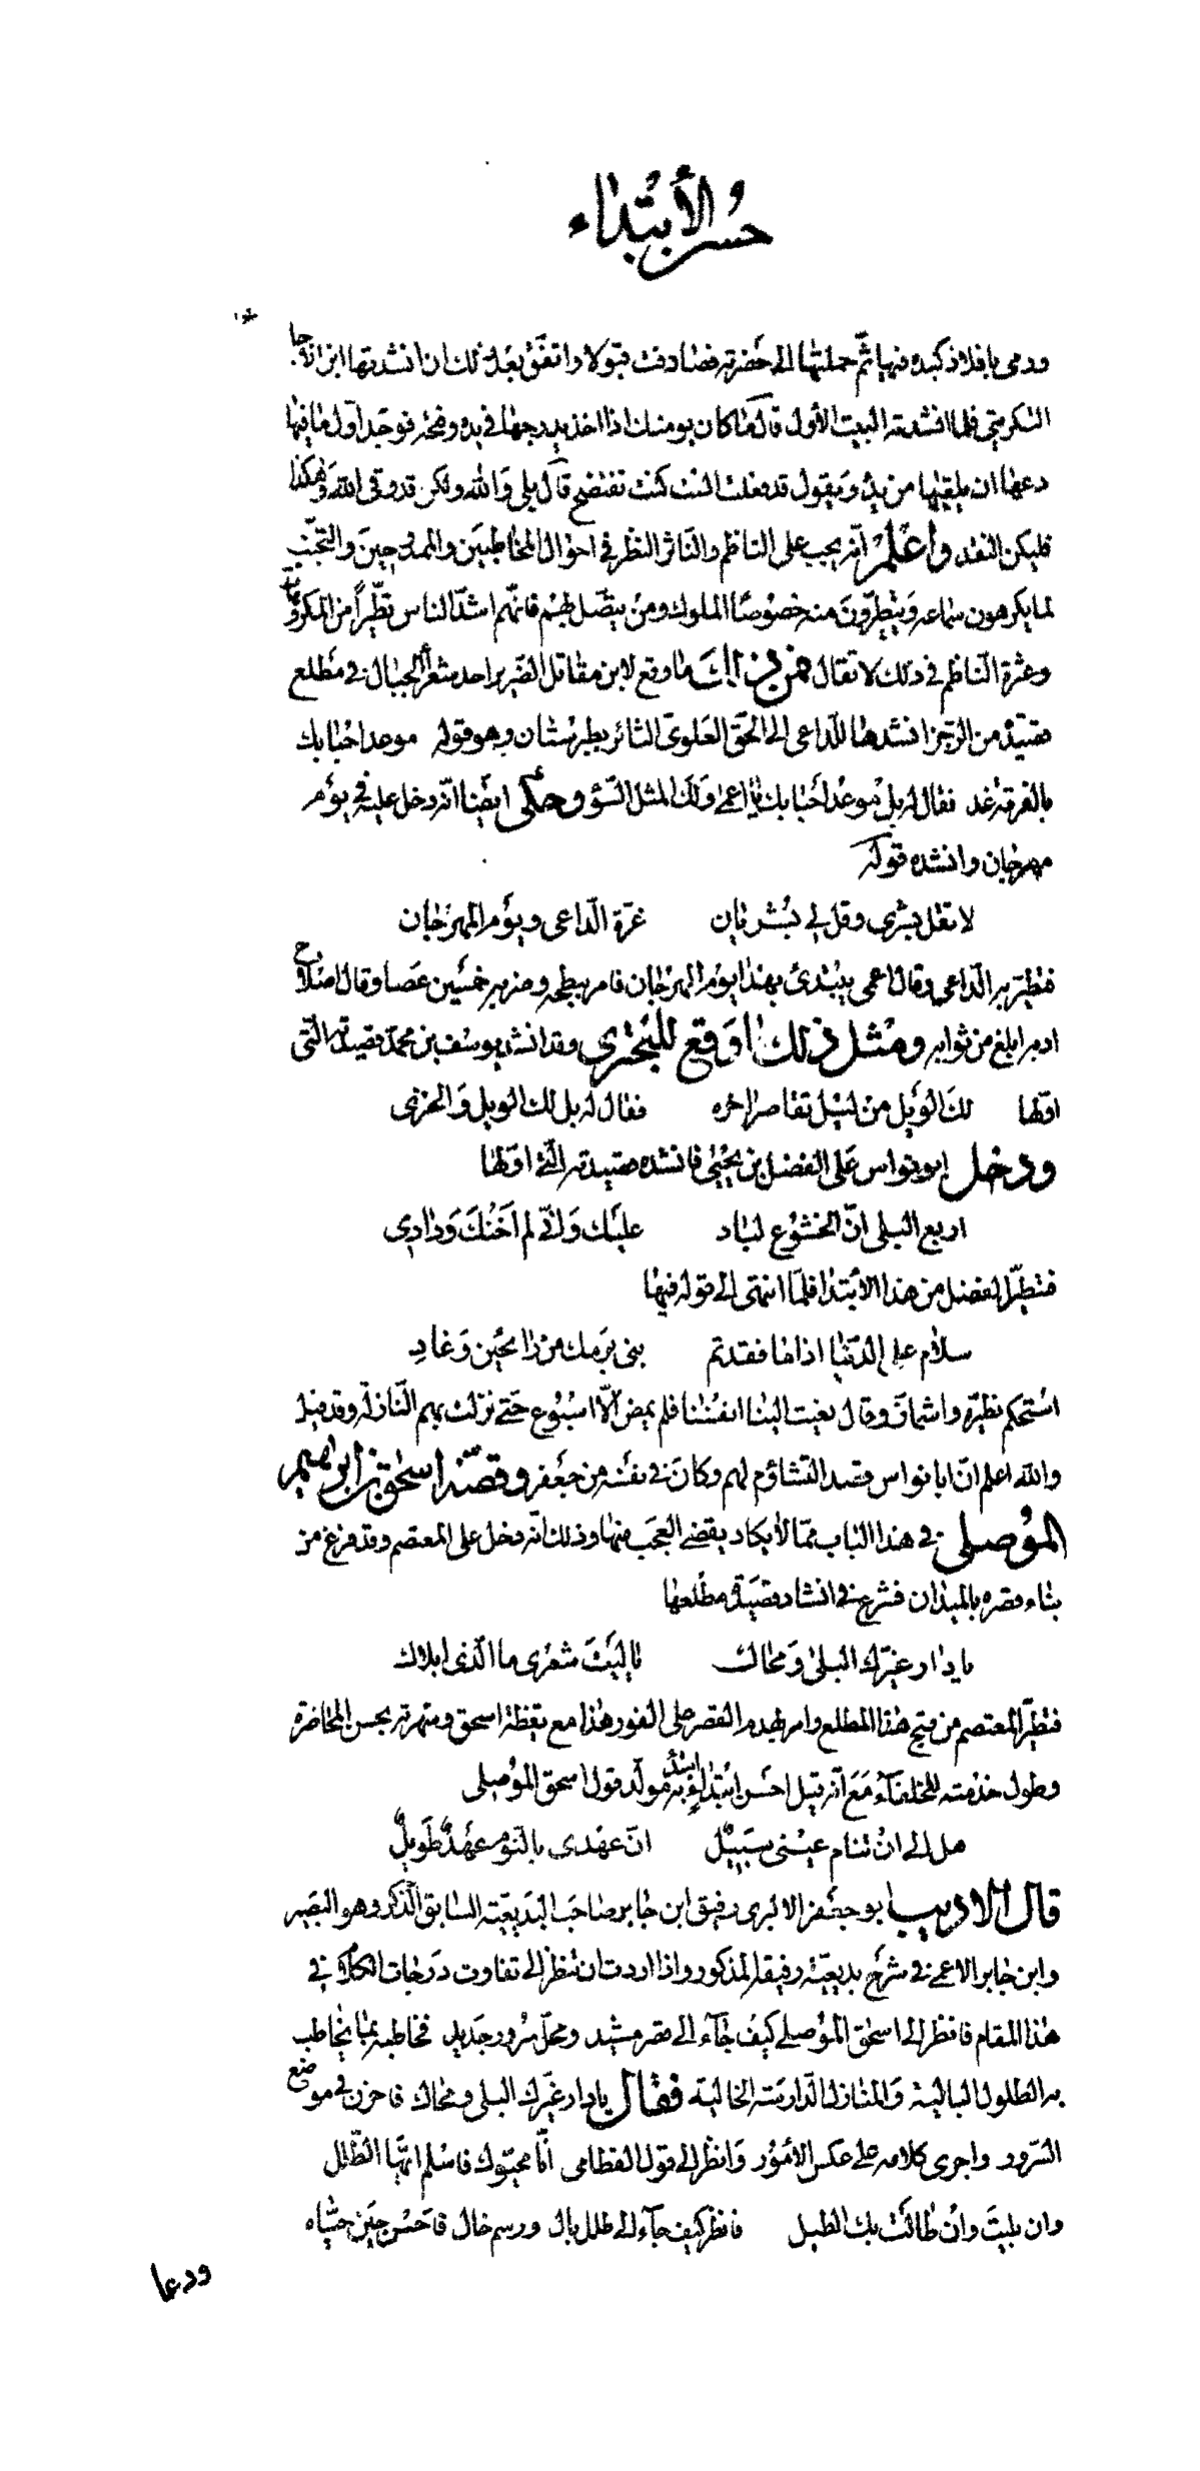 حسن الابتداء
ودمى بافلاذ كبده فيها ثم حملتها الى حضرته فصادفت قبولا واتفق بعد ذلك ان انشدتها ابن انه جا
التكريتي فلما انشدته البيت الأول قال ما كان يومنك اذا اخذ يدرجها في يده وفتحه فوجد اول ما فيها
دعها ان يلقيها من يده ويقول قد فعلت الست كنت تفتضح قال بلى والله ولكن قد وقى الله وهكذا
فليكن النقد واعلم انه يجب على الناظم والناثر النظر في احوال المخاطبين والممدوحين والتجنب
لما يكرهون سماعه ويتطيرون منه خصوصا الملوك ومن يتصل بهم فانهم اشد الناس تطيرا من المكروه
وعثرة الناظم في ذلك لا تقال فمن ذلك ما وقع لابن مقاتل الضرير احد شعراء الجبال في مطلع
قصيدة من الرجز انشدها للداعى الى الحق العلوى الثائر بطبرستان وهو قوله موعد احبابك
بالفرقة غد فقال له بل موعد احبابك يا اعمى ولك المثل السؤ وحكى ايضا انه دخل عليه في يوم
مهرجان وانشده قوله
لا تقل بشرى وقل لي بشريان غرة الداعى ويوم المهرجان
فتطير به الداعي وقال اعمى يبتدئ بهذا يوم المهرجان فامر ببطحه وضربه خمسين عصا وقال اصلاح
ادبه ابلغ من ثوابه ومثل ذلك ما وقع للبحتري وقد انشد يوسف بن محمد قصيدته التى
اولها لك الويل من ليل تقاصر اخره فقال له بل لك الويل والخزى
ودخل ابو نواس على الفضل بن يحيى فانشده قصيدته التى اولها
اربع البلى ان الخشوع لباد عليك وانى لم اخنك ودادي
فتطير الفضل من هذا الابتدا فلما انتهى الى قوله فيها
سلام على الدنيا اذا ما فقدتم بنى برمك من رائحين وغاد
استحكم تطيره واشمأز وقال نعيت الينا انفسنا فلم يمض الا اسبوع حتى نزلت بهم النازلة وقد قيل
والله اعلم ان ابا نواس قصد التشاؤم لهم وكان في نفسه من جعفر وقصة اسحق بن ابراهيم
الموصلى في هذا الباب مما لا يكاد يقضى العجب منها وذلك انه دخل على المعتصم وقد فرغ من
بناء قصره بالميدان فشرع في انشاد قصيدة مطلعها
يا دار غيرك البلى ومحاك يا ليت شعرى ما الذى ابلاك
فتطير المعتصم من قبح هذا المطلع وامر بهدم القصر على الفور هذا مع يقظة اسحق وشهرته بحسن المحاضرة
وطول خدمته للخلفاء مع انه قيل احسن ابتداء ابتدأ به مولد قول اسحق الموصلى
هل الى ان تنام عينى سبيل ان عهدى بالنوم عهد طويل
قال الاديب ابو جعفر الالبرى رفيق ابن جابر صاحب البديعية السابق الذكر وهو البصير
وابن جابر الاعمى في شرح بديعية رفيقه المذكور واذا اردت ان تنظر الى تفاوت درجات الكلام في
هذا المقام فانظر الى اسحق الموصلى كيف جاء الى قصر مشيد ومحل سرور جديد فخاطبه بما يخاطب
به الطلول البالية والمنازل الدارسة الخالية فقال يا دار غيرك البلى ومحاك فاحزن في موضع
السرور واجرى كلامه على عكس الامور وانظر الى قول القطامى انا محيوك فاسلم ايها الطلل
وان بليت وان طالت بك الطيل فانظر كيف جاء الى طلل بال ورسم خال فاحسن حين حياه
ودعا